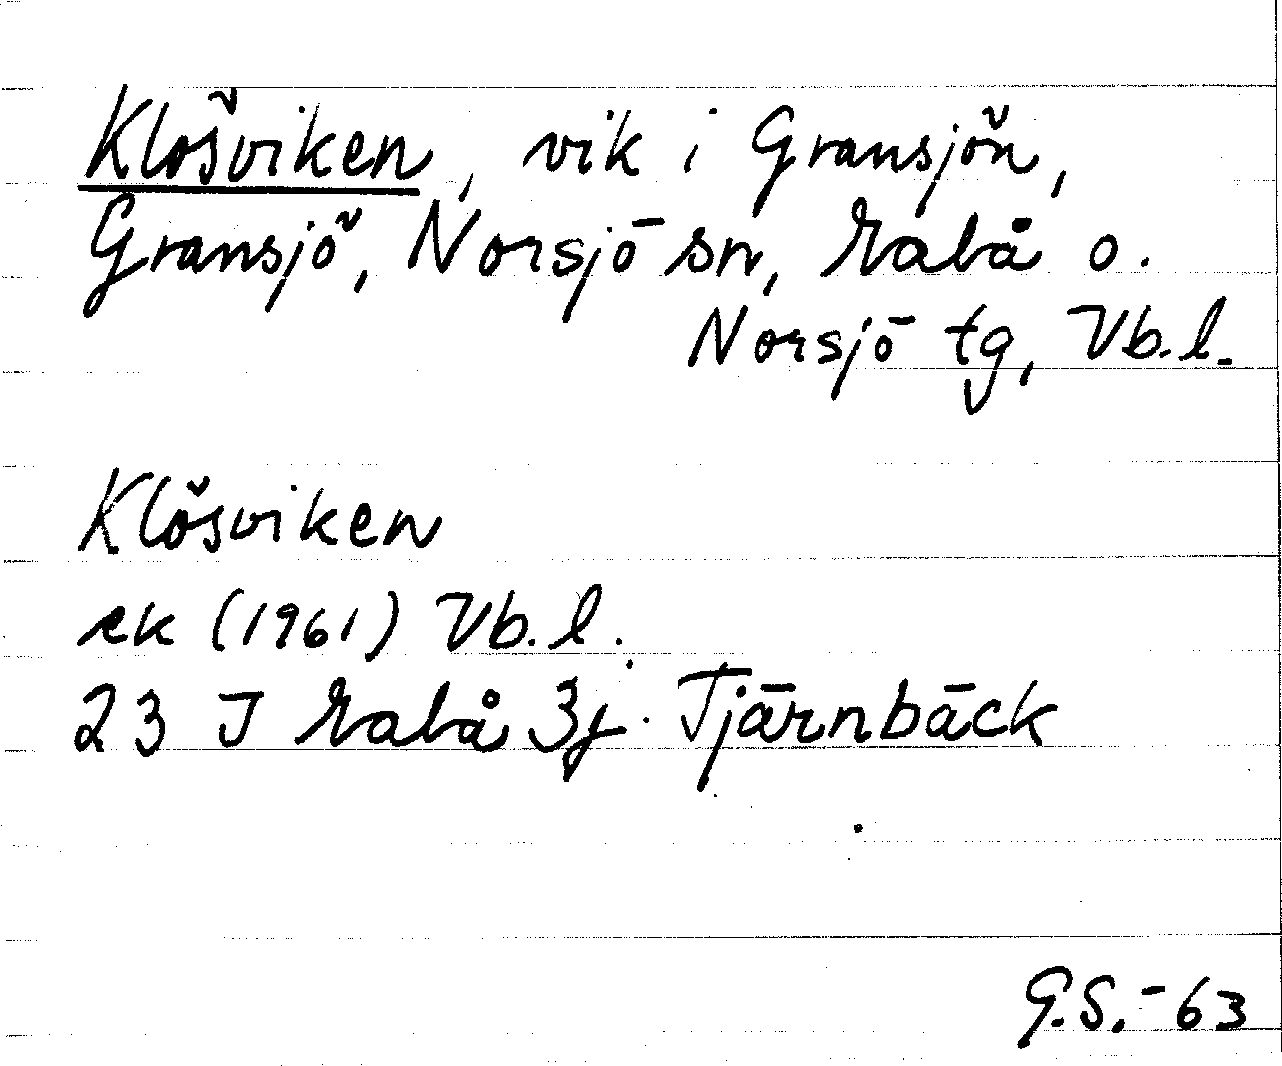 Klösviken, vik i Gransjön,
Gransjö, Norsjö sn, Malå o.
Norsjö tg, Vb.l.
Klösviken
ek (1961) Vb.l.
23 J Malå 3j. Tjärnbäck
G.S.-63